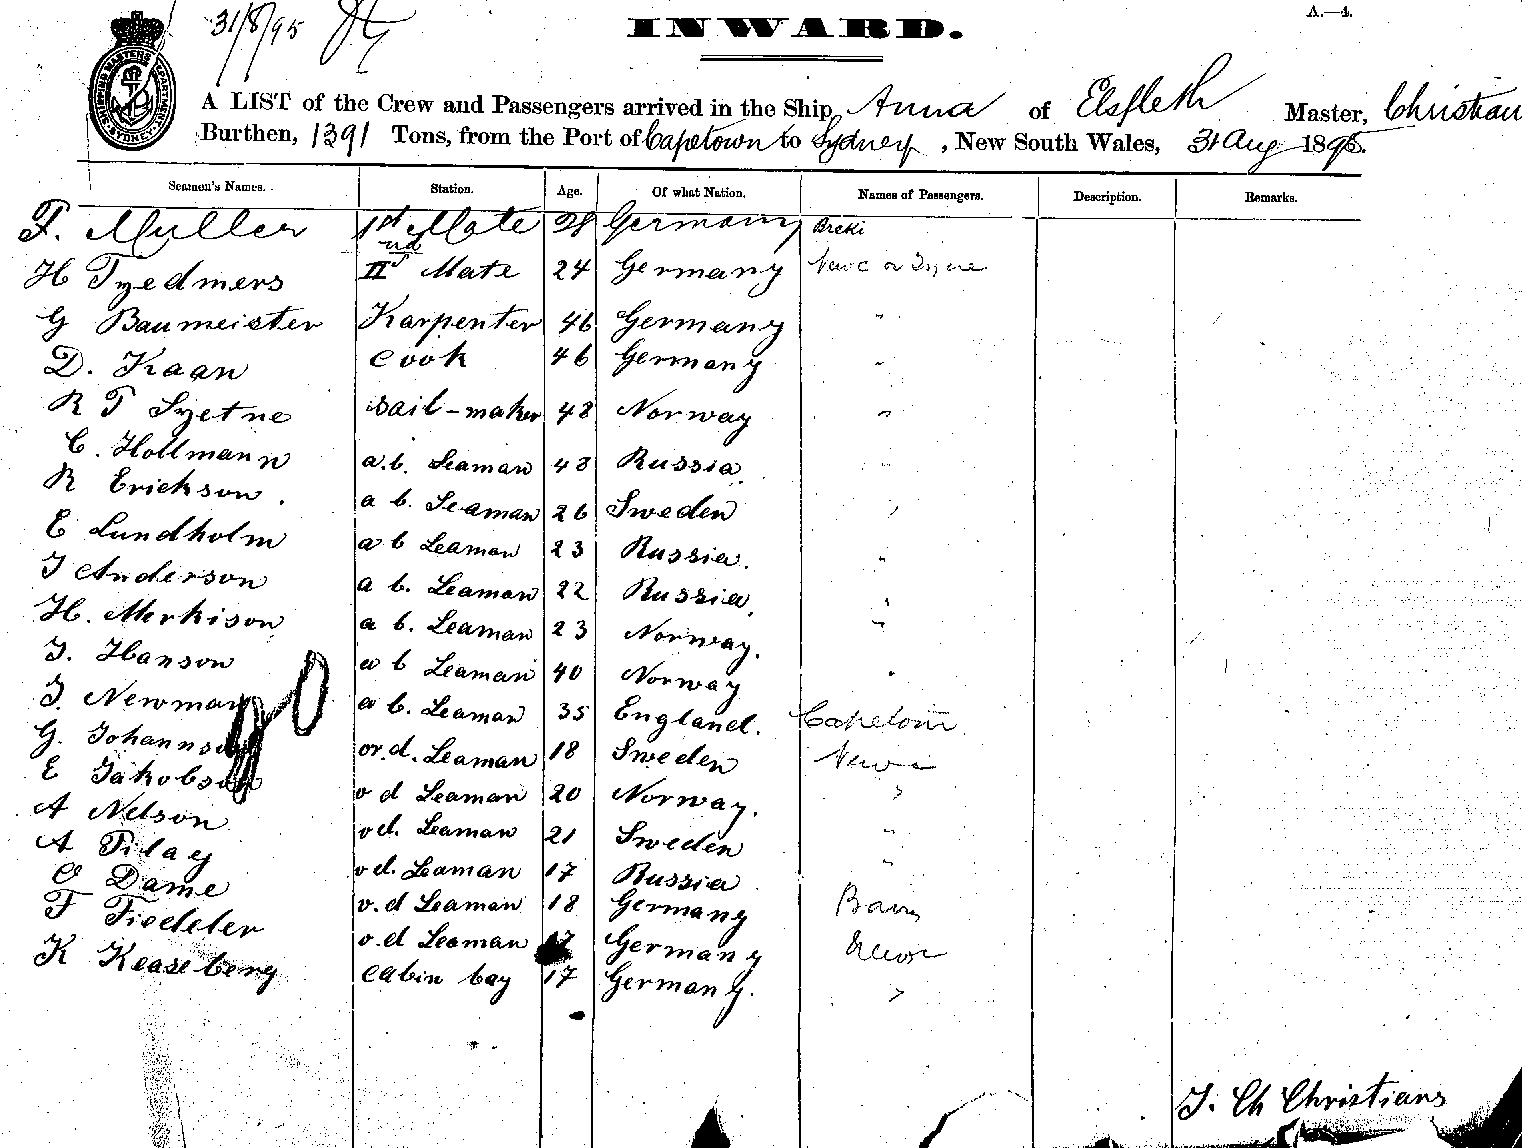 31/8/95
A.—4.
INWARD.
SHIPPING MASTERS DEPARTMENT SYDNEY
A LIST of the Crew and Passengers arrived in the Ship Anna of Elsfleth Master, Christian
Burthen, 1391 Tons, from the Port of Capetown to Sydney, New South Wales, 31 Aug 1895.
Seamen's Names. Station. Age. Of what Nation. Names of Passengers. Description. Remarks.
F. Muller 1st Mate 28 Germany
H Tyedmers IInd Mate 24 Germany Newc on Tyne
G Baumeister Karpenter 46 Germany "
D. Kaan cook 46 Germany "
R T Syetne sail-maker 48 Norway "
C. Hollmann a.b. Seaman 48 Russia. "
R Erickson. a b. Seaman 26 Sweden "
E Lundholm a b Seaman 23 Russia. "
J Anderson a b. Seaman 22 Russia. "
H. Merkison a b. Seaman 23 Norway. "
J. Hanson a b Seaman 40 Norway "
J. Newman a b. Seaman 35 England. Capetown
G. Johannson or.d. Seaman 18 Sweden Newc
E Jakobson o d Seaman 20 Norway. "
A Nelson od. Seaman 21 Sweden "
A Pilag od. Seaman 17 Russia "
O Dame o.d Seaman 18 Germany
F Fiedeler o.d Seaman 17 Germany Newc
K Keaseberg cabin boy 17 Germany. "
J. Ch Christians